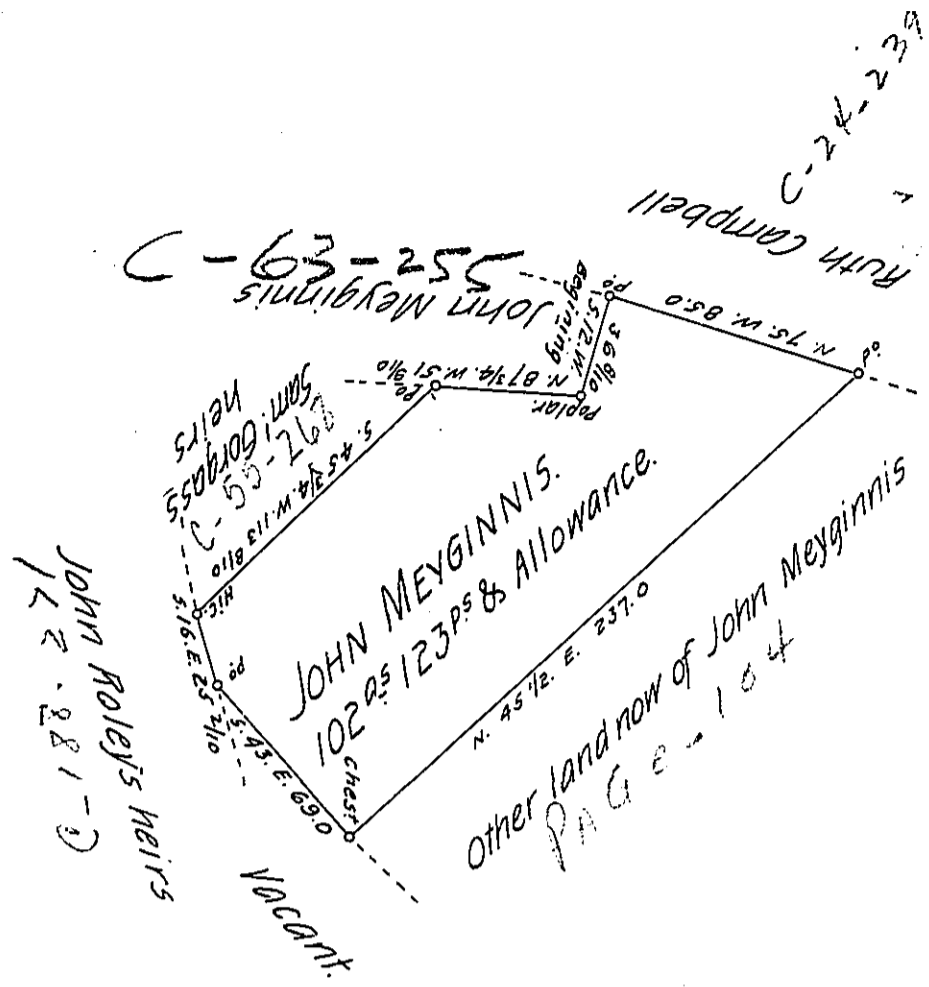 C-24-239
Ruth Campbell
C-63-25
John Meyginnis
Begining
Po.
S. 12. W.
36 8/10
N. 75. W. 85.0
Po.
Poplar.
N. 87 3/4. W. 51 9/10
Po.
Sam! Gorgas's
heirs
C-55-262
S. 45 3/4. W. 113 8/10
Hic.
S. 16. E. 25 2/10
Po.
S. 43. E. 69.0
Chest
JOHN MEYGINNIS.
102as 123ps & Allowance.
N. 45 1/2. E. 237.0
Other land now of John Meyginnis
PAGE-104
John Roley's heirs
Vacant.